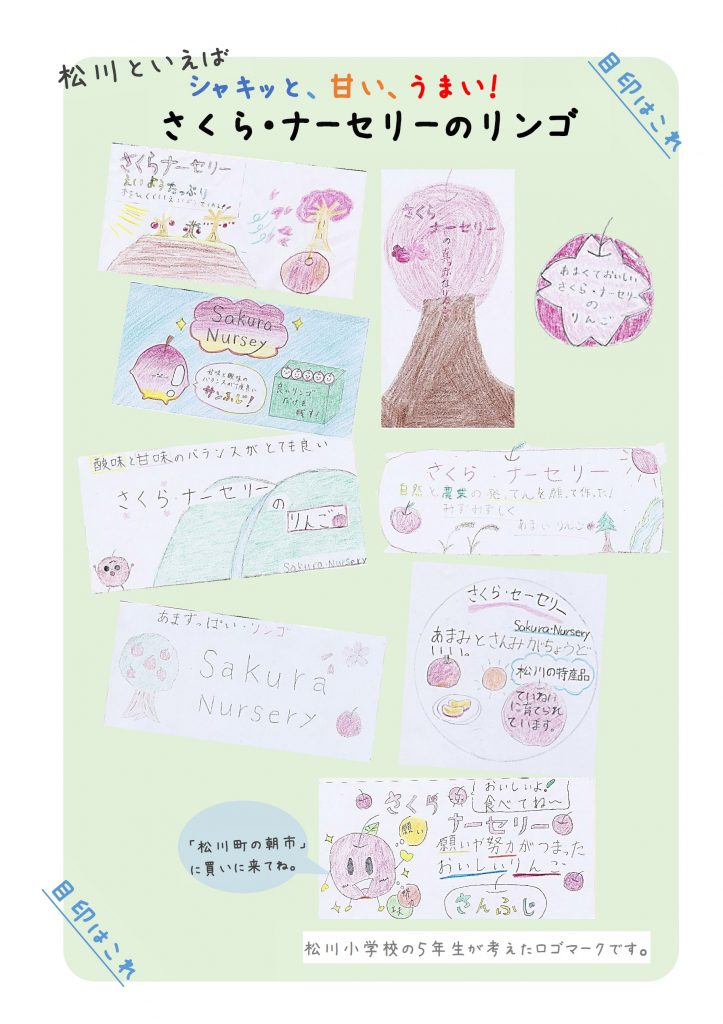 松川といえば
目印はこれ
シャキッと、甘い、うまい!
さくら・ナーセリーのリンゴ
さくらナーセリー
さくら
ナーセリー
あまくておいしい
さくら・ナーセリー
の
りんご
Sakura
Nursey
甘味と酸味の
バランスが
サンふじ!
良いリンゴ
だけを
残す!
酸味と甘味のバランスがとても良い
さくら・ナーセリー
の
りんご
Sakura Nursery
さくら・ナーセリー
自然と農業の発てんを願って作った!
みずみずしく
あまいりんご
あますっぱい・リンゴ
Sakura
Nursery
さくら・セーセリー
Sakura・Nursery
あまみとさんみがちょうど
いい。
松川の特産品
ていねい
に育てられ
ています。
おいしいよ!
食べてね〜
さくら
ナーセリー
願い
願いや努力がつまった
おいしいりんご
さんふじ
「松川町の朝市」
に買いに来てね。
目印はこれ
松川小学校の5年生が考えたロゴマークです。